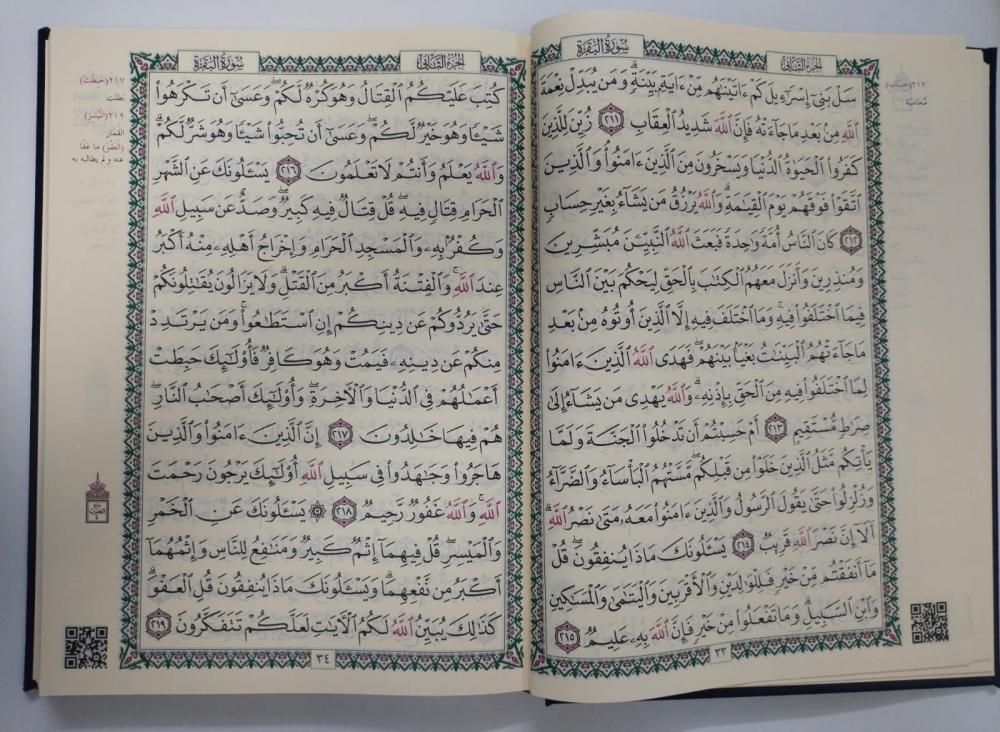 سُورَةُ البَقَرَةِ
الجُزْءُ الثَّانِي
٢١٢ (حِسَابٍ)
سَلْ بَنِىٓ إِسْرَٰٓءِيلَ كَمْ ءَاتَيْنَٰهُم مِّنْ ءَايَةٍۭ بَيِّنَةٍۗ وَمَن يُبَدِّلْ نِعْمَةَ
ٱللَّهِ مِنۢ بَعْدِ مَا جَآءَتْهُ فَإِنَّ ٱللَّهَ شَدِيدُ ٱلْعِقَابِ ٢١١ زُيِّنَ لِلَّذِينَ
كَفَرُوا۟ ٱلْحَيَوٰةُ ٱلدُّنْيَا وَيَسْخَرُونَ مِنَ ٱلَّذِينَ ءَامَنُوا۟ۘ وَٱلَّذِينَ
ٱتَّقَوْا۟ فَوْقَهُمْ يَوْمَ ٱلْقِيَٰمَةِۗ وَٱللَّهُ يَرْزُقُ مَن يَشَآءُ بِغَيْرِ حِسَابٍ
٢١٢ كَانَ ٱلنَّاسُ أُمَّةً وَٰحِدَةً فَبَعَثَ ٱللَّهُ ٱلنَّبِيِّۦنَ مُبَشِّرِينَ
وَمُنذِرِينَ وَأَنزَلَ مَعَهُمُ ٱلْكِتَٰبَ بِٱلْحَقِّ لِيَحْكُمَ بَيْنَ ٱلنَّاسِ
فِيمَا ٱخْتَلَفُوا۟ فِيهِۚ وَمَا ٱخْتَلَفَ فِيهِ إِلَّا ٱلَّذِينَ أُوتُوهُ مِنۢ بَعْدِ
مَا جَآءَتْهُمُ ٱلْبَيِّنَٰتُ بَغْيًۢا بَيْنَهُمْۖ فَهَدَى ٱللَّهُ ٱلَّذِينَ ءَامَنُوا۟
لِمَا ٱخْتَلَفُوا۟ فِيهِ مِنَ ٱلْحَقِّ بِإِذْنِهِۦۗ وَٱللَّهُ يَهْدِى مَن يَشَآءُ إِلَىٰ
صِرَٰطٍ مُّسْتَقِيمٍ ٢١٣ أَمْ حَسِبْتُمْ أَن تَدْخُلُوا۟ ٱلْجَنَّةَ وَلَمَّا
يَأْتِكُم مَّثَلُ ٱلَّذِينَ خَلَوْا۟ مِن قَبْلِكُمۖ مَّسَّتْهُمُ ٱلْبَأْسَآءُ وَٱلضَّرَّآءُ
وَزُلْزِلُوا۟ حَتَّىٰ يَقُولَ ٱلرَّسُولُ وَٱلَّذِينَ ءَامَنُوا۟ مَعَهُۥ مَتَىٰ نَصْرُ ٱللَّهِۗ
أَلَآ إِنَّ نَصْرَ ٱللَّهِ قَرِيبٌ ٢١٤ يَسْـَٔلُونَكَ مَاذَا يُنفِقُونَۖ قُلْ
مَآ أَنفَقْتُم مِّنْ خَيْرٍ فَلِلْوَٰلِدَيْنِ وَٱلْأَقْرَبِينَ وَٱلْيَتَٰمَىٰ وَٱلْمَسَٰكِينِ
وَٱبْنِ ٱلسَّبِيلِۗ وَمَا تَفْعَلُوا۟ مِنْ خَيْرٍ فَإِنَّ ٱللَّهَ بِهِۦ عَلِيمٌ ٢١٥
٣٣
الجُزْءُ الثَّانِي
سُورَةُ البَقَرَةِ
كُتِبَ عَلَيْكُمُ ٱلْقِتَالُ وَهُوَ كُرْهٌ لَّكُمْۖ وَعَسَىٰٓ أَن تَكْرَهُوا۟
شَيْـًٔا وَهُوَ خَيْرٌ لَّكُمْۖ وَعَسَىٰٓ أَن تُحِبُّوا۟ شَيْـًٔا وَهُوَ شَرٌّ لَّكُمْۗ
وَٱللَّهُ يَعْلَمُ وَأَنتُمْ لَا تَعْلَمُونَ ٢١٦ يَسْـَٔلُونَكَ عَنِ ٱلشَّهْرِ
ٱلْحَرَامِ قِتَالٍ فِيهِۖ قُلْ قِتَالٌ فِيهِ كَبِيرٌۖ وَصَدٌّ عَن سَبِيلِ ٱللَّهِ
وَكُفْرٌۢ بِهِۦ وَٱلْمَسْجِدِ ٱلْحَرَامِ وَإِخْرَاجُ أَهْلِهِۦ مِنْهُ أَكْبَرُ
عِندَ ٱللَّهِۚ وَٱلْفِتْنَةُ أَكْبَرُ مِنَ ٱلْقَتْلِۗ وَلَا يَزَالُونَ يُقَٰتِلُونَكُمْ
حَتَّىٰ يَرُدُّوكُمْ عَن دِينِكُمْ إِنِ ٱسْتَطَٰعُوا۟ۚ وَمَن يَرْتَدِدْ
مِنكُمْ عَن دِينِهِۦ فَيَمُتْ وَهُوَ كَافِرٌ فَأُو۟لَٰٓئِكَ حَبِطَتْ
أَعْمَٰلُهُمْ فِى ٱلدُّنْيَا وَٱلْأَخِرَةِۖ وَأُو۟لَٰٓئِكَ أَصْحَٰبُ ٱلنَّارِۖ
هُمْ فِيهَا خَٰلِدُونَ ٢١٧ إِنَّ ٱلَّذِينَ ءَامَنُوا۟ وَٱلَّذِينَ
هَاجَرُوا۟ وَجَٰهَدُوا۟ فِى سَبِيلِ ٱللَّهِ أُو۟لَٰٓئِكَ يَرْجُونَ رَحْمَتَ
ٱللَّهِۚ وَٱللَّهُ غَفُورٌ رَّحِيمٌ ٢١٨ ۞ يَسْـَٔلُونَكَ عَنِ ٱلْخَمْرِ
وَٱلْمَيْسِرِۖ قُلْ فِيهِمَآ إِثْمٌ كَبِيرٌ وَمَنَٰفِعُ لِلنَّاسِ وَإِثْمُهُمَآ
أَكْبَرُ مِن نَّفْعِهِمَاۗ وَيَسْـَٔلُونَكَ مَاذَا يُنفِقُونَ قُلِ ٱلْعَفْوَۗ
كَذَٰلِكَ يُبَيِّنُ ٱللَّهُ لَكُمُ ٱلْأَيَٰتِ لَعَلَّكُمْ تَتَفَكَّرُونَ ٢١٩
٣٤
٢١٧ (حَبِطَتْ)
بَطلت
٢١٩ (الْمَيْسِرِ)
القمار
(الْعَفْوَ) ما عفا
عنه ولم يطالبه به